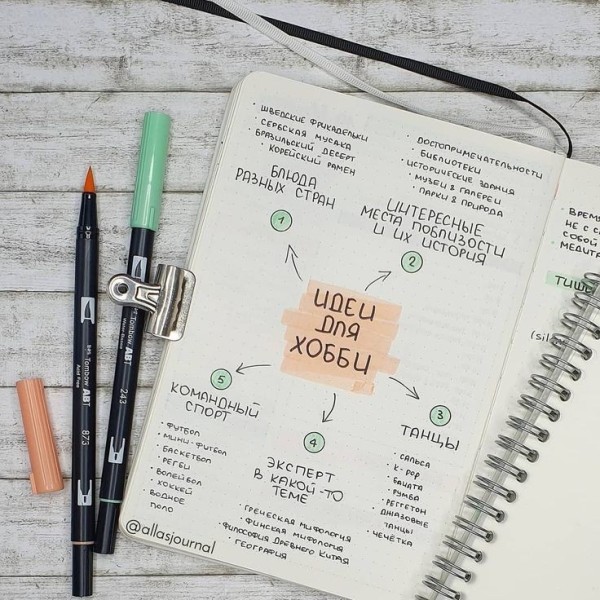 ИДЕИ
ДЛЯ
ХОББИ
1
• ШВЕДСКИЕ ФРИКАДЕЛЬКИ
• СЕРБСКАЯ МУСАКА
• БРАЗИЛЬСКИЙ ДЕСЕРТ
• КОРЕЙСКИЙ РАМЕН
БЛЮДА
РАЗНЫХ СТРАН
• ДОСТОПРИМЕЧАТЕЛЬНОСТИ
• БИБЛИОТЕКИ
• ИСТОРИЧЕСКИЕ ЗДАНИЯ
• МУЗЕИ & ГАЛЕРЕИ
• ПАРКИ & ПРИРОДА
ИНТЕРЕСНЫЕ
МЕСТА ПОБЛИЗОСТИ
И ИХ ИСТОРИЯ
2
3
ТАНЦЫ
• САЛЬСА
• K-POP
• БАЧАТА
• РУМБА
• РЕГГЕТОН
• ДЖАЗОВЫЕ
ТАНЦЫ
• ЧЕЧЁТКА
4
ЭКСПЕРТ
В КАКОЙ-ТО
ТЕМЕ
• ГРЕЧЕСКАЯ МИФОЛОГИЯ
• ФИНСКАЯ МИФОЛОГИЯ
• ФИЛОСОФИЯ ДРЕВНЕГО КИТАЯ
• ГЕОГРАФИЯ
5
КОМАНДНЫЙ
СПОРТ
• ФУТБОЛ
• МИНИ-ФУТБОЛ
• БАСКЕТБОЛ
• РЕГБИ
• ВОЛЕЙБОЛ
• ХОККЕЙ
• ВОДНОЕ
ПОЛО
• ВРЕМЯ
НЕ С
СОБОЙ
МЕДИТА
ТИШ
(sil
Tombow ABT
873
Tombow ABT
243
@allasjournal